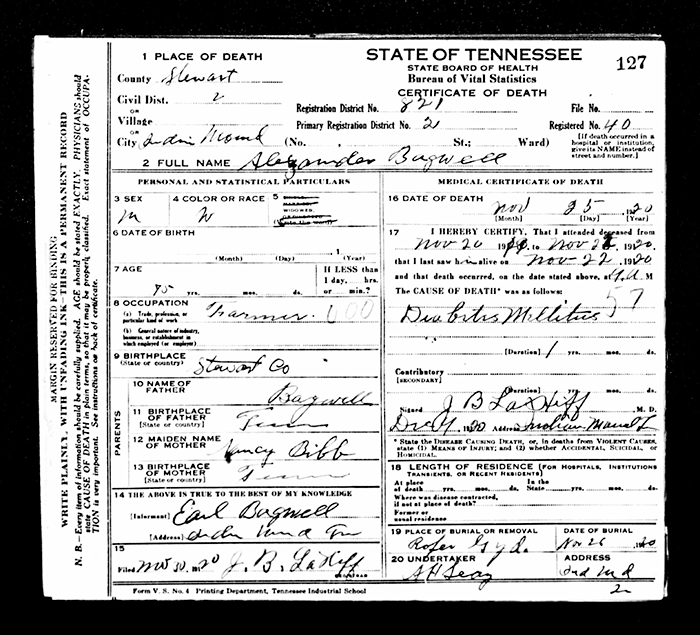 1 PLACE OF DEATH
County Stewart
Civil Dist. 2
OR
Village
OR
City Indian Mound (No. St.; Ward)
STATE OF TENNESSEE
STATE BOARD OF HEALTH
Bureau of Vital Statistics
CERTIFICATE OF DEATH
127
Registration District No. 821 File No.
Primary Registration District No. 2 Registered No. 40
[If death occurred in a hospital or institution, give its NAME instead of street and number.]
2 FULL NAME Alexander Bagwell
PERSONAL AND STATISTICAL PARTICULARS
3 SEX M
4 COLOR OR RACE W
5
6 DATE OF BIRTH
(Month) (Day) (Year)
7 AGE
yrs. mos. ds.
If LESS than
1 day, hrs.
or min.?
8 OCCUPATION Farmer
(a) Trade, profession, or
particular kind of work
(b) General nature of industry,
business, or establishment in
which employed (or employer)
9 BIRTHPLACE Stewart Co
(State or country)
PARENTS
10 NAME OF
FATHER Bagwell
11 BIRTHPLACE
OF FATHER Tenn
[State or country]
12 MAIDEN NAME
OF MOTHER Nancy
13 BIRTHPLACE
OF MOTHER Tenn
[State or country]
14 THE ABOVE IS TRUE TO THE BEST OF MY KNOWLEDGE
[Informant] Earl Bagwell
[Address]
15
Filed Nov 30, 1920 J. B. LaHiff
REGISTRAR
MEDICAL CERTIFICATE OF DEATH
16 DATE OF DEATH
Nov 25 1920
[Month] (Day) (Year)
17 I HEREBY CERTIFY, That I attended deceased from
Nov 20 to Nov 1920
that I last saw him alive on Nov 22 1920
and that death occurred, on the date stated above, at M
The CAUSE OF DEATH* was as follows:
57
Diabetis Millitus
[Duration] 1 yrs. mos. ds.
Contributory
[SECONDARY]
(Duration) yrs. mos. ds.
Signed J B LaHiff M. D.
1920 Address Indian Mound T
*State the DISEASE CAUSING DEATH, or, in deaths from VIOLENT CAUSES, state (1) MEANS OF INJURY; and (2) whether ACCIDENTAL, SUICIDAL, or HOMICIDAL.
18 LENGTH OF RESIDENCE (FOR HOSPITALS, INSTITUTIONS
TRANSIENTS, OR RECENT RESIDENTS)
At place In the
of death yrs. mos. ds. State yrs. mos. ds.
Where was disease contracted,
if not at place of death?
Former or
usual residence
19 PLACE OF BURIAL OR REMOVAL DATE OF BURIAL
Nov 26 1920
20 UNDERTAKER ADDRESS
A H Seay Ind Md
2
Form V. S. No. 4 Printing Department, Tennessee Industrial School
MARGIN RESERVED FOR BINDING
WRITE PLAINLY, WITH UNFADING INK—THIS IS A PERMANENT RECORD
N. B.—Every item of information should be carefully supplied. AGE should be stated EXACTLY. PHYSICIANS should
state CAUSE OF DEATH in plain terms, so that it may be properly classified. Exact statement of OCCUPA-
TION is very important. See instructions on back of certificate.